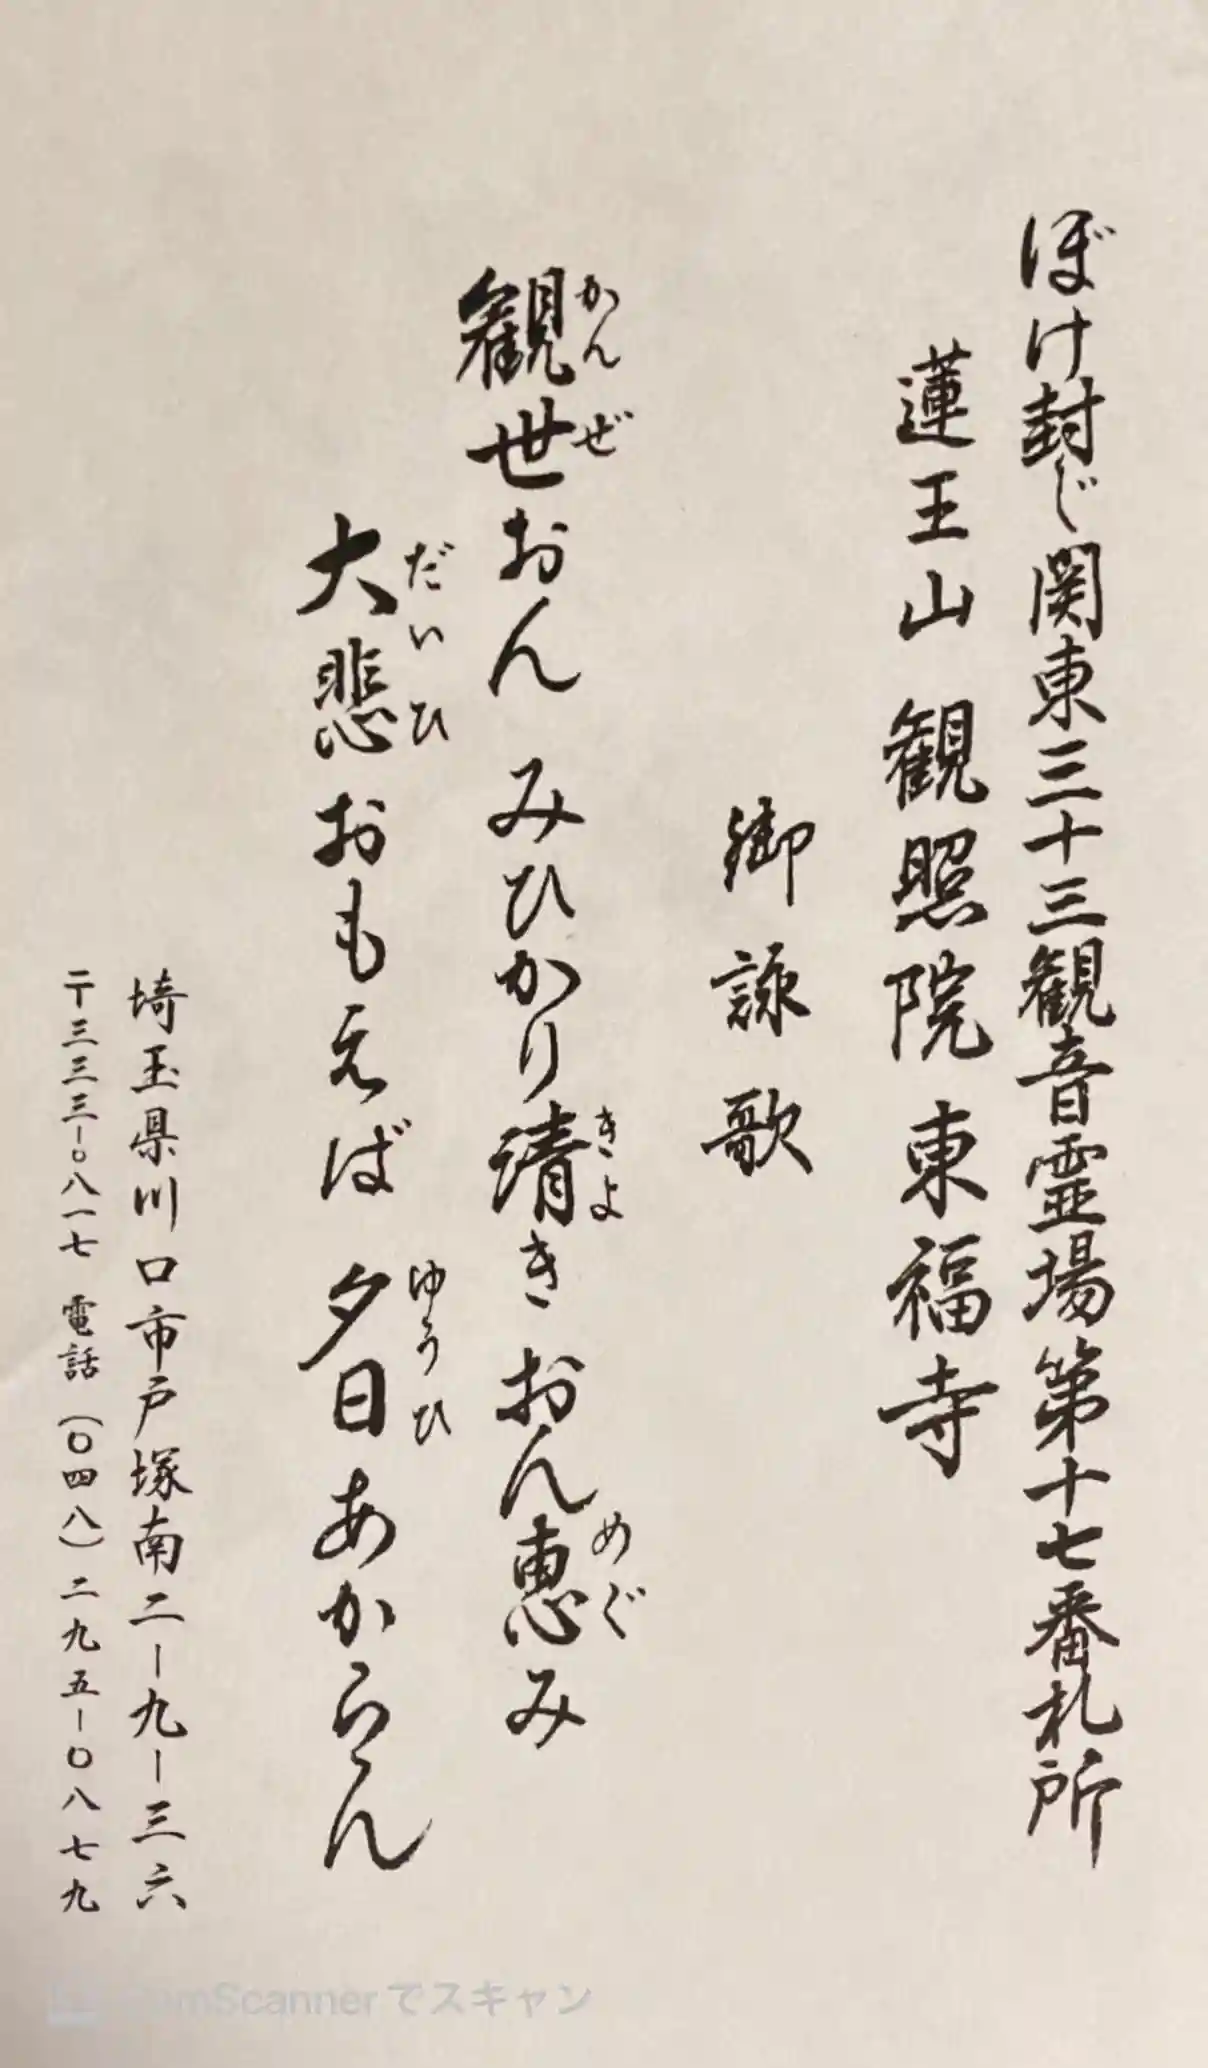 ぼけ封じ関東三十三観音霊場第十七番札所
蓮王山 観照院 東福寺
御詠歌
観世おん みひかり清き おん恵み
かんぜ きよ めぐ
大悲おもえば 夕日あからん
だいひ ゆうひ
埼玉県川口市戸塚南二-九-三六
〒三三三-〇八一七 電話(〇四八)二九五-〇八七九
CamScannerでスキャン